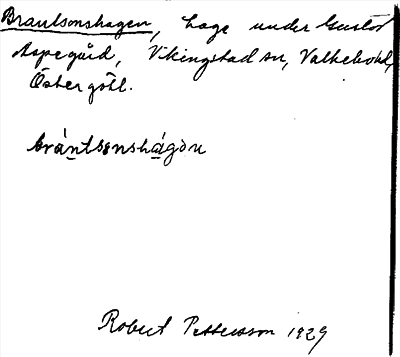 Brantsonshagen, hage under Gustav
Aspegård, Vikingstad sn, Valkebohd,
Östergötl.
bràntsònshágən
Robert Pettersson 1929